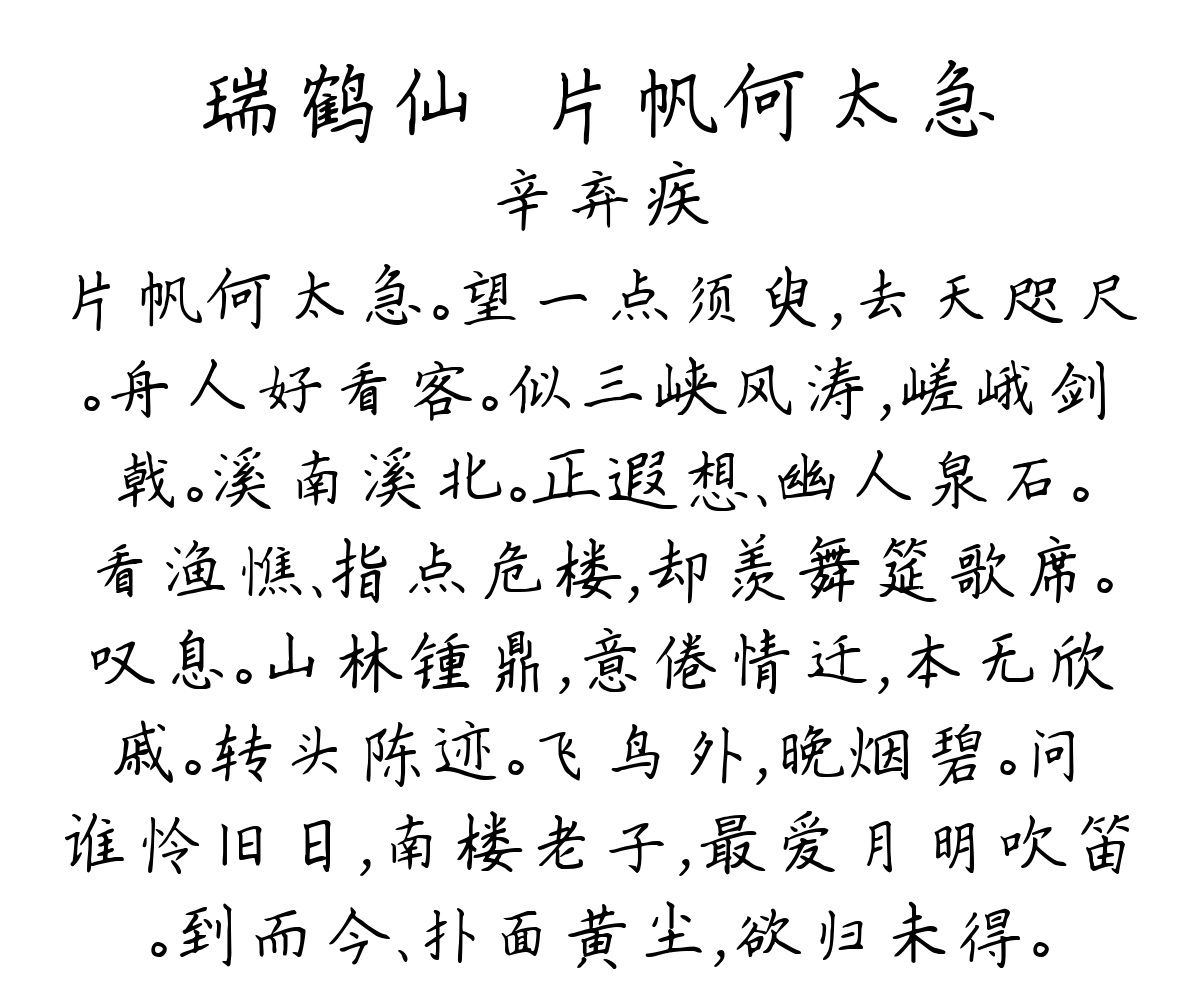 瑞鹤仙 片帆何太急
辛弃疾
片帆何太急。望一点须臾,去天咫尺
。舟人好看客。似三峡风涛,嵯峨剑
戟。溪南溪北。正遐想、幽人泉石。
看渔憔、指点危楼,却羡舞筵歌席。
叹息。山林锺鼎,意倦情迁,本无欣
戚。转头陈迹。飞鸟外,晚烟碧。问
谁怜旧日,南楼老子,最爱月明吹笛
。到而今、扑面黄尘,欲归未得。